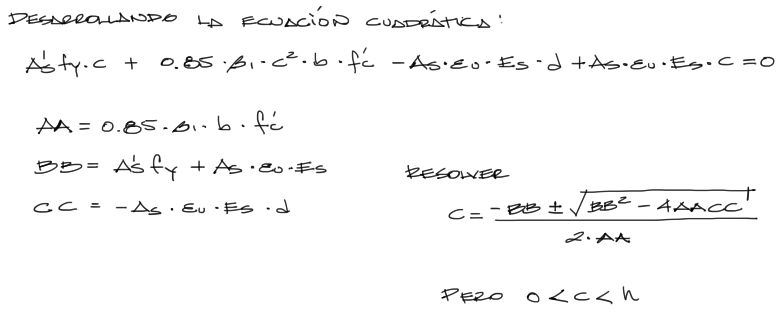 DESARROLLANDO LA ECUACIÓN CUADRÁTICA:
A's fy·c + 0.85·β1·c²·b·f'c - As·εu·Es·d + As·εu·Es·c = 0
AA = 0.85·β1·b·f'c
BB = A's fy + As·εu·Es
CC = -As·εu·Es·d
RESOLVER
C = (-BB ± √(BB² - 4AACC)) / (2·AA)
PERO 0 < c < h